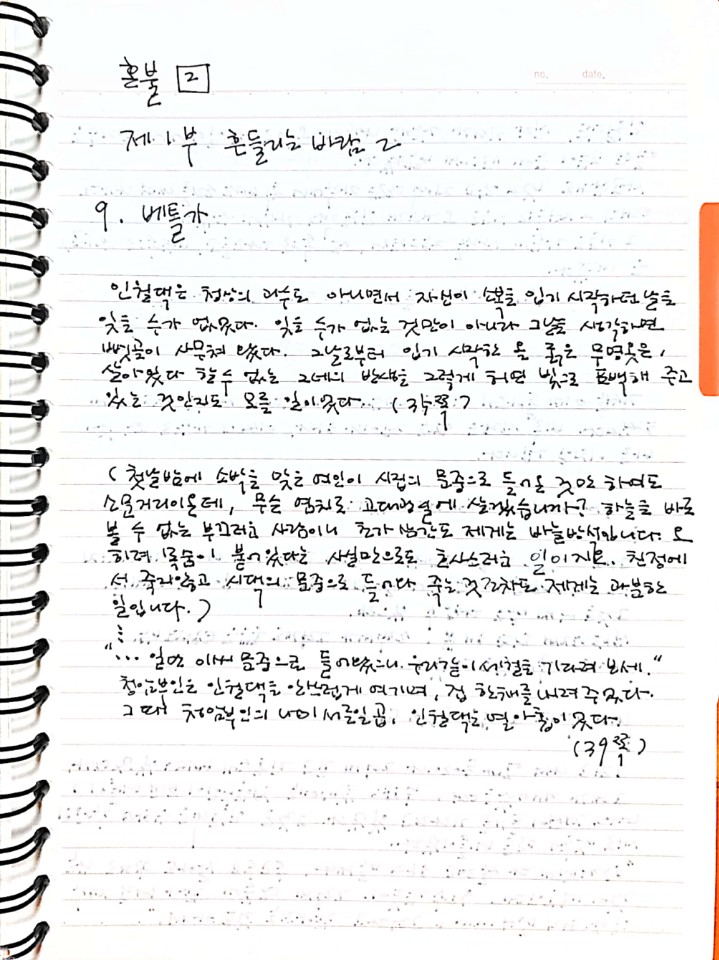 혼불 2
no. date.
제1부 흔들리는 바람 2
9. 베틀가
인월댁은 청상의 과수도 아니면서 자신이 소복을 입기 시작하던 날을
잊을 수가 없었다. 잊을 수가 없는 것만이 아니라 그날을 생각하면
뼛골이 사무쳐 왔다. 그날로부터 입기 시작한 올 굵은 무명옷은,
살아있다 할 수 없는 그네의 반생을 그렇게 허연 빛으로 표백해 주고
있는 것인지도 모를 일이었다. (37쪽)
(첫날밤에 소박을 맞은 여인이 시집의 문중으로 들어온 것만 하여도
소문거리이온데, 무슨 염치로 고대광실에 살겠습니까. 하늘을 바로
볼 수 없는 부끄러운 사람이니 초가삼간도 제게는 바늘방석입니다. 오
하려 목숨이 붙어있다는 사실만으로도 호사스러운 일이지요. 친정에
서 죽지않고 시댁의 문중으로 들어다 죽는 것조차도 제게는 과분한
일입니다.)
⋮
"… 일단 이씨 문중으로 들어왔으니 우리같이 세월을 기다려 보세."
청암부인은 인월댁을 안쓰럽게 여기며, 집 한채를 내려주었다.
그때 청암부인의 나이 서른일곱, 인월댁은 열아홉이었다.
(39쪽)